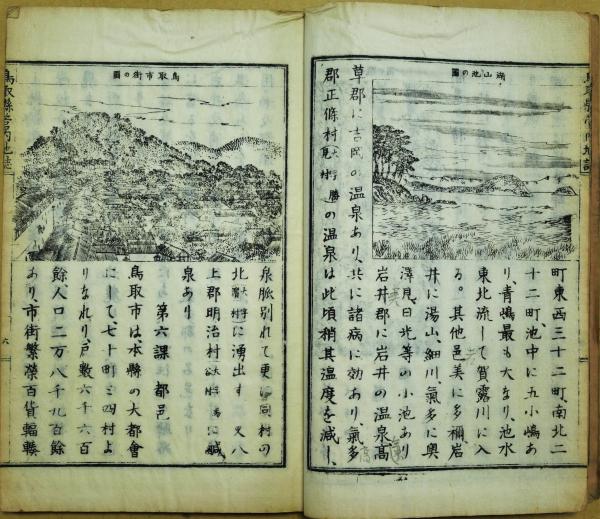 湖山池の圖
町東西三十二町、南北二
十二町池中に五小嶋あ
り、青嶋最も大なり、池水
東北流して賀露川に入
る。其他邑美に多禰岩
井に湯山、細川氣多に奥
澤見、日光等の小池あり
岩井郡に岩井の温泉、高
草郡に吉岡の温泉あり、共に諸病に効あり氣多
郡正條村大字勝見の温泉は此頃稍其温度を減し、
鳥取市街の圖
泉脈別れて更に同村の
北大字濱村に湧出す 又八
上郡明治村大字に鹹
泉あり
第六課 都邑
鳥取市は、本縣の大都會
にして、七十町と四村よ
りなれり、戸數六千六百
餘人口二万八千九百餘
あり、市街繁榮百貨輻輳
鳥取縣管内地誌
六